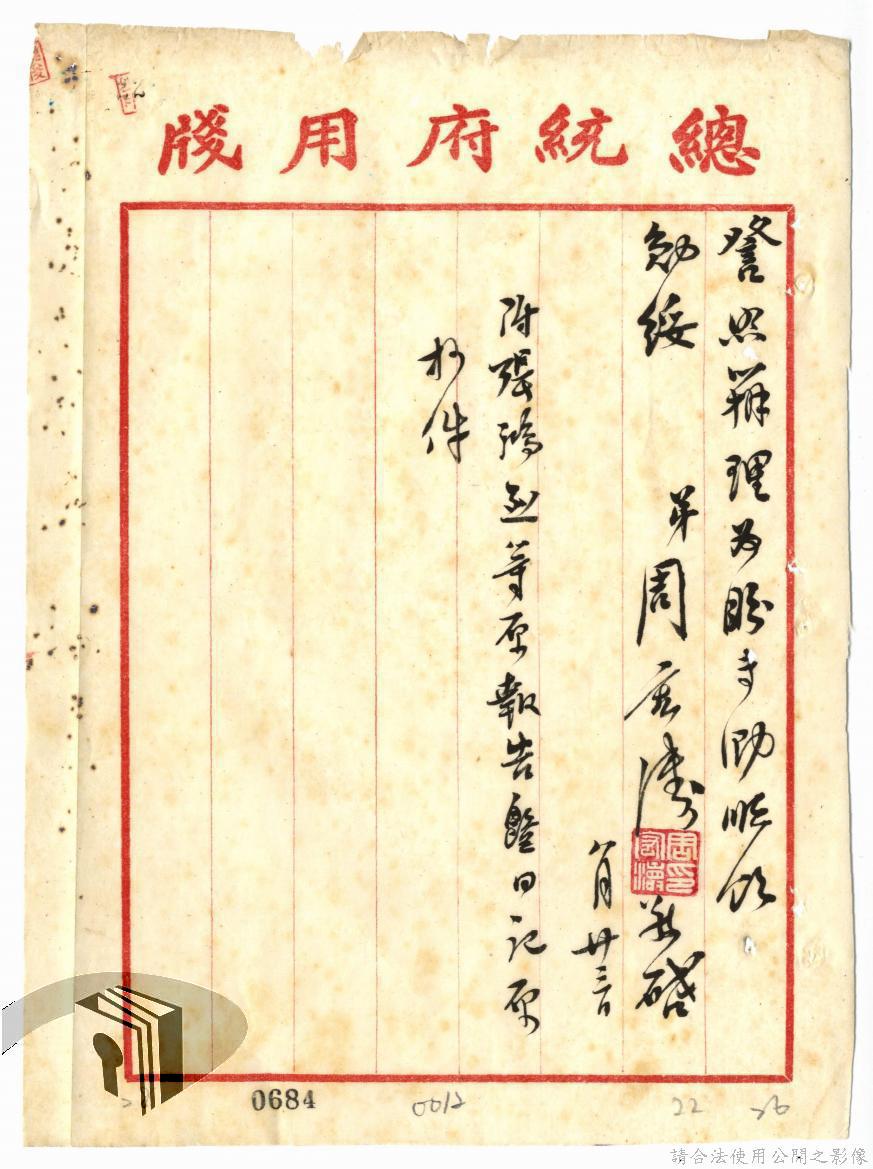 總統府用牋
詧照辦理為盼耑此順頌
勛綏
弟周宏濤敬啓
周宏濤印
八月廿三日
附張鴻逵等原報告暨日記原
抄件
0684
0012
22
26
請合法使用公開之影像